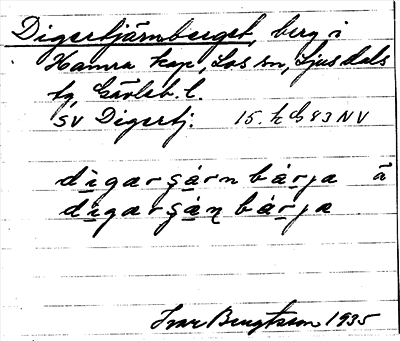 Digertjärnberget, berg i
Hamra kap, Los sn, Ljusdals
tg, Gävleb. l.
SV Digertj. 15. h G 83 NV
digarʂárn bárja ä
digarʂáɳ bárja
Ivar Bengtsson 1935